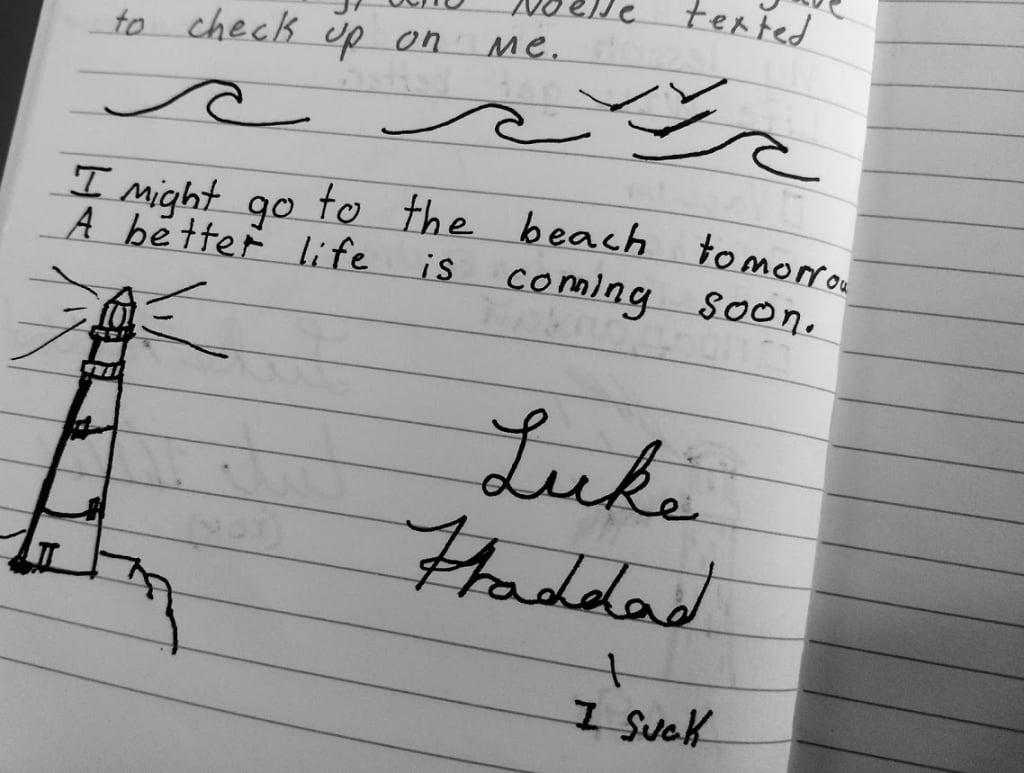 Noelle texted
to check up on me.
I might go to the beach tomorrow
A better life is coming soon.
Luke
Haddad
I suck